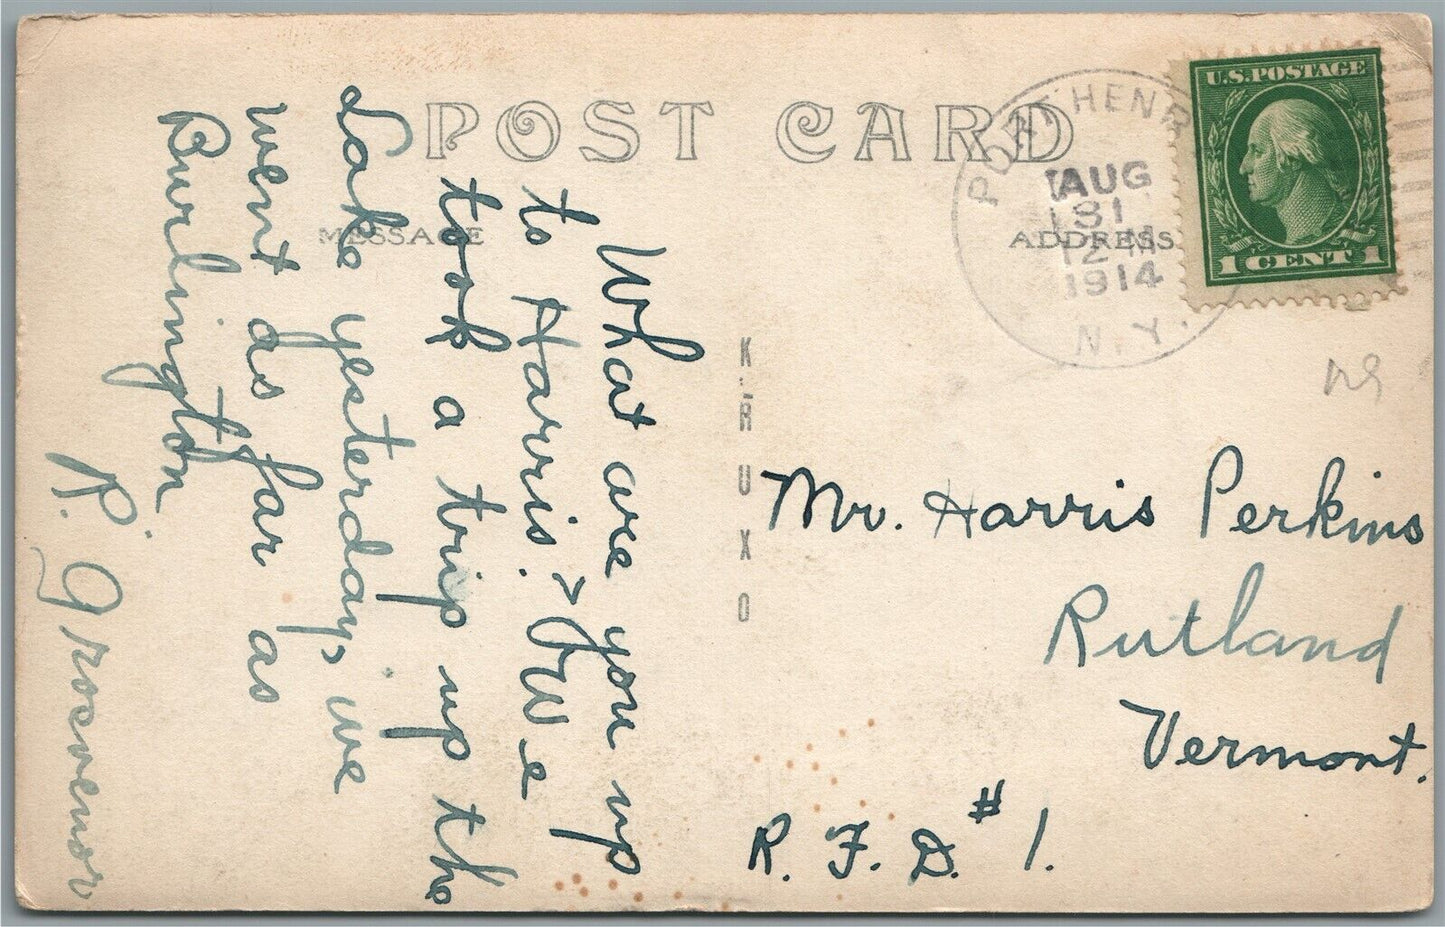 POST CARD
MESSAGE
ADDRESS
PORT HENRY
AUG
31
12 M
1914
N.Y.
U.S. POSTAGE
1 CENT 1
What are you up
to Harris. > We
took a trip up the
Lake yesterday, we
went as far as
Burlington
R. Grosvenor
K.RUXO
Mr. Harris Perkins
Rutland
Vermont.
R. F. D. #1.